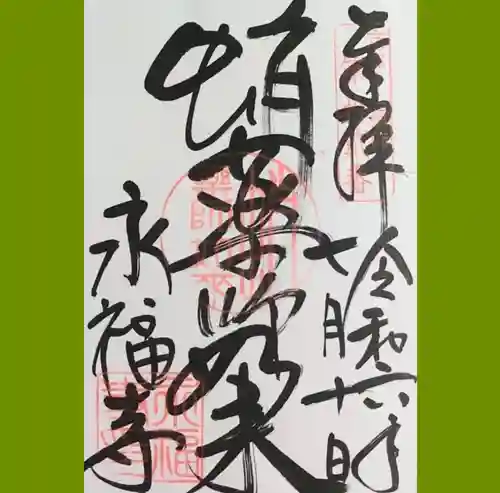 奉拝
令和六年
七月十日
蛸薬師如来
永福寺